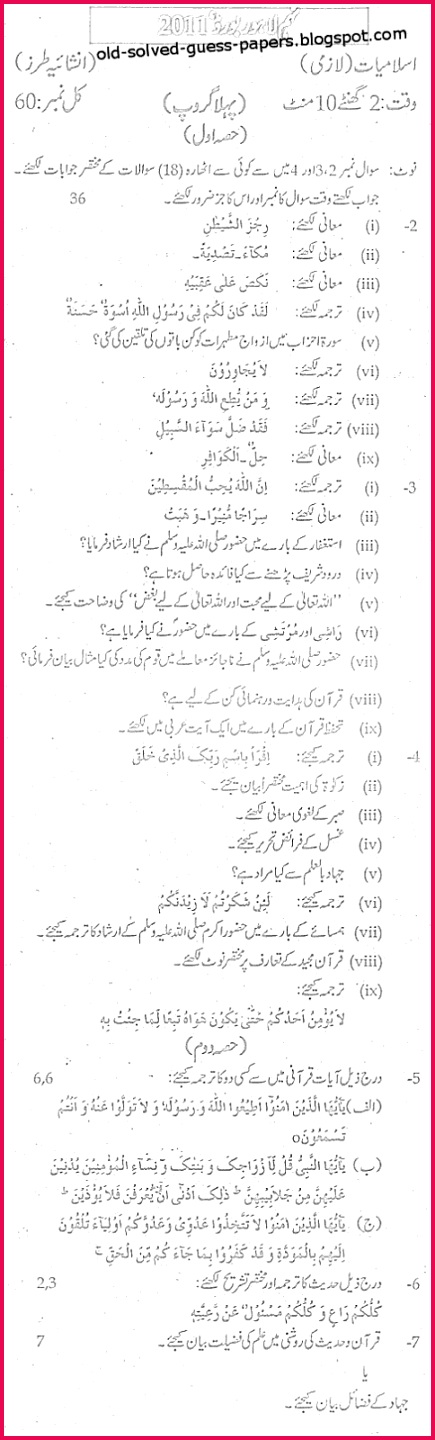 نہم لاہور بورڈ 2011
old-solved-guess-papers.blogspot.com
اسلامیات (لازمی) (انشائیہ طرز)
وقت: 2 گھنٹے 10 منٹ (پہلا گروپ) کل نمبر: 60
(حصہ اول)
نوٹ: سوال نمبر 2،3 اور 4 میں سے کوئی سے اٹھارہ (18) سوالات کے مختصر جوابات لکھئے۔
جواب لکھتے وقت سوال کا نمبر اور اس کا جز ضرور لکھئے۔ 36
2- (i) معانی لکھئے: رِجْزَ الشَّيْطٰنِ
(ii) معانی لکھئے: مُكَآءً۔ تَصْدِيَةً۔
(iii) معانی لکھئے: نَكَصَ عَلٰى عَقِبَيْهِ
(iv) ترجمہ لکھئے: لَقَدْ كَانَ لَكُمْ فِىْ رَسُوْلِ اللّٰهِ اُسْوَةٌ حَسَنَةٌ
(v) سورۃ احزاب میں ازواج مطہرات کو کن باتوں کی تلقین کی گئی؟
(vi) ترجمہ لکھئے: لَا يُجَاوِرُوْنَ
(vii) ترجمہ لکھئے: وَ مَنْ يُّطِعِ اللّٰهَ وَ رَسُوْلَهٗ
(viii) ترجمہ لکھئے: فَقَدْ ضَلَّ سَوَآءَ السَّبِيْلِ
(ix) معانی لکھئے: حِلٌّ۔ اَلْكَوَافِرِ
3- (i) ترجمہ لکھئے: اِنَّ اللّٰهَ يُحِبُّ الْمُقْسِطِيْنَ
(ii) معانی لکھئے: سِرَاجًا مُّنِيْرًا۔ وَهَبَتْ
(iii) استغفار کے بارے میں حضور صلی اللہ علیہ وسلم نے کیا ارشاد فرمایا؟
(iv) درود شریف پڑھنے سے کیا فائدہ حاصل ہوتا ہے؟
(v) "اللہ تعالیٰ کے لیے محبت اور اللہ تعالیٰ کے لیے بغض" کی وضاحت کیجئے۔
(vi) رَاشِی اور مُرْتَشِی کے بارے میں حضورؐ نے کیا فرمایا ہے؟
(vii) حضور صلی اللہ علیہ وسلم نے ناجائز معاملے میں قوم کی مدد کی کیا مثال بیان فرمائی؟
(viii) قرآن کی ہدایت و رہنمائی کن کے لیے ہے؟
(ix) تحفظ قرآن کے بارے میں ایک آیت عربی میں لکھئے۔
4- (i) ترجمہ کیجئے: اِقْرَاْ بِاسْمِ رَبِّكَ الَّذِىْ خَلَقَ
(ii) زکوٰۃ کی اہمیت مختصراً بیان کیجئے۔
(iii) صبر کے لغوی معانی لکھئے۔
(iv) غسل کے فرائض تحریر کیجئے۔
(v) جہاد بالعلم سے کیا مراد ہے؟
(vi) ترجمہ کیجئے: لَئِنْ شَكَرْتُمْ لَاَ زِيْدَنَّكُمْ
(vii) ہمسائے کے بارے میں حضور اکرم صلی اللہ علیہ وسلم کے ارشاد کا ترجمہ کیجئے۔
(viii) قرآن مجید کے تعارف پر مختصر نوٹ لکھئے۔
(ix) ترجمہ کیجئے:
لَا يُؤْمِنُ اَحَدُكُمْ حَتّٰى يَكُوْنَ هَوَاهُ تَبَعًا لِّمَا جِئْتُ بِهٖ
(حصہ دوم)
5- درج ذیل آیات قرآنی میں سے کسی دو کا ترجمہ کیجئے: 6,6
(الف) يٰٓاَيُّهَا الَّذِيْنَ اٰمَنُوْٓا اَطِيْعُوا اللّٰهَ وَ رَسُوْلَهٗ وَ لَا تَوَلَّوْا عَنْهُ وَ اَنْتُمْ
تَسْمَعُوْنَ o
(ب) يٰٓاَيُّهَا النَّبِىُّ قُلْ لِّاَزْوَاجِكَ وَ بَنٰتِكَ وَ نِسَآءِ الْمُؤْمِنِيْنَ يُدْنِيْنَ
عَلَيْهِنَّ مِنْ جَلَابِيْبِهِنَّ ؕ ذٰلِكَ اَدْنٰٓى اَنْ يُّعْرَفْنَ فَلَا يُؤْذَيْنَ ؕ
(ج) يٰٓاَيُّهَا الَّذِيْنَ اٰمَنُوْا لَا تَتَّخِذُوْا عَدُوِّىْ وَ عَدُوَّكُمْ اَوْلِيَآءَ تُلْقُوْنَ
اِلَيْهِمْ بِالْمَوَدَّةِ وَ قَدْ كَفَرُوْا بِمَا جَآءَ كُمْ مِّنَ الْحَقِّ ۚ
6- درج ذیل حدیث کا ترجمہ اور مختصر تشریح لکھئے: 2,3
كُلُّكُمْ رَاعٍ وَ كُلُّكُمْ مَسْئُوْلٌ عَنْ رَّعِيَّتِهٖ
7- قرآن و حدیث کی روشنی میں علم کی فضیلت بیان کیجئے۔ 7
یا
جہاد کے فضائل بیان کیجئے۔